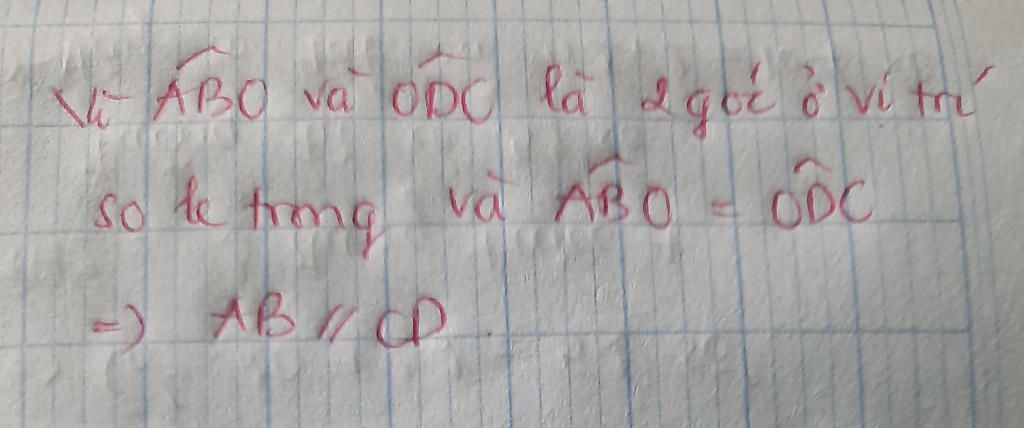 Vì \widehat{ABO} và \widehat{ODC} là 2 góc ở vị trí
so le trong và \widehat{ABO} = \widehat{ODC}
=> AB // CD